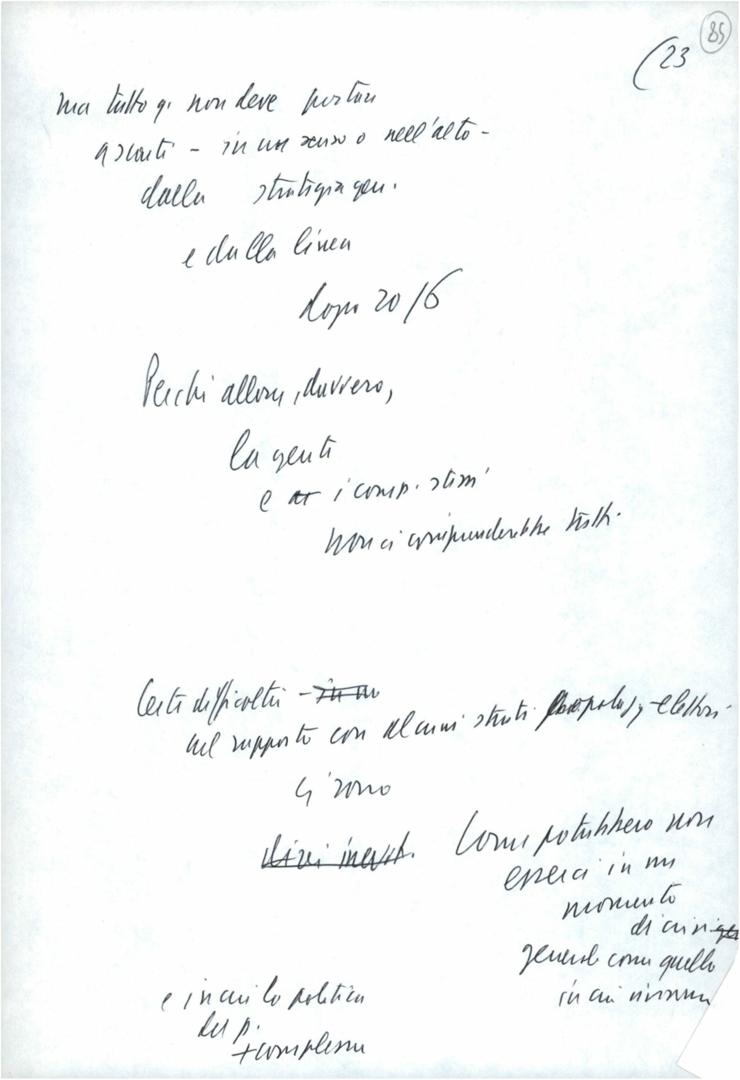 85
(23
ma tutto q. non deve portarci
a scarti - in un senso o nell'altro -
dalla strategia gen.
e dalla linea
dopo 20/6
Perché allora, davvero,
la gente
e i comp. stessi
non ci comprenderebbe
Certe difficoltà -
nel rapporto con alcuni strati elettori
ci sono
direi inevit.
Come potrebbero non
esserci in un
momento
di crisi
generale come quello
in cui viviamo
e in cui la politica
del p.
+ complessa